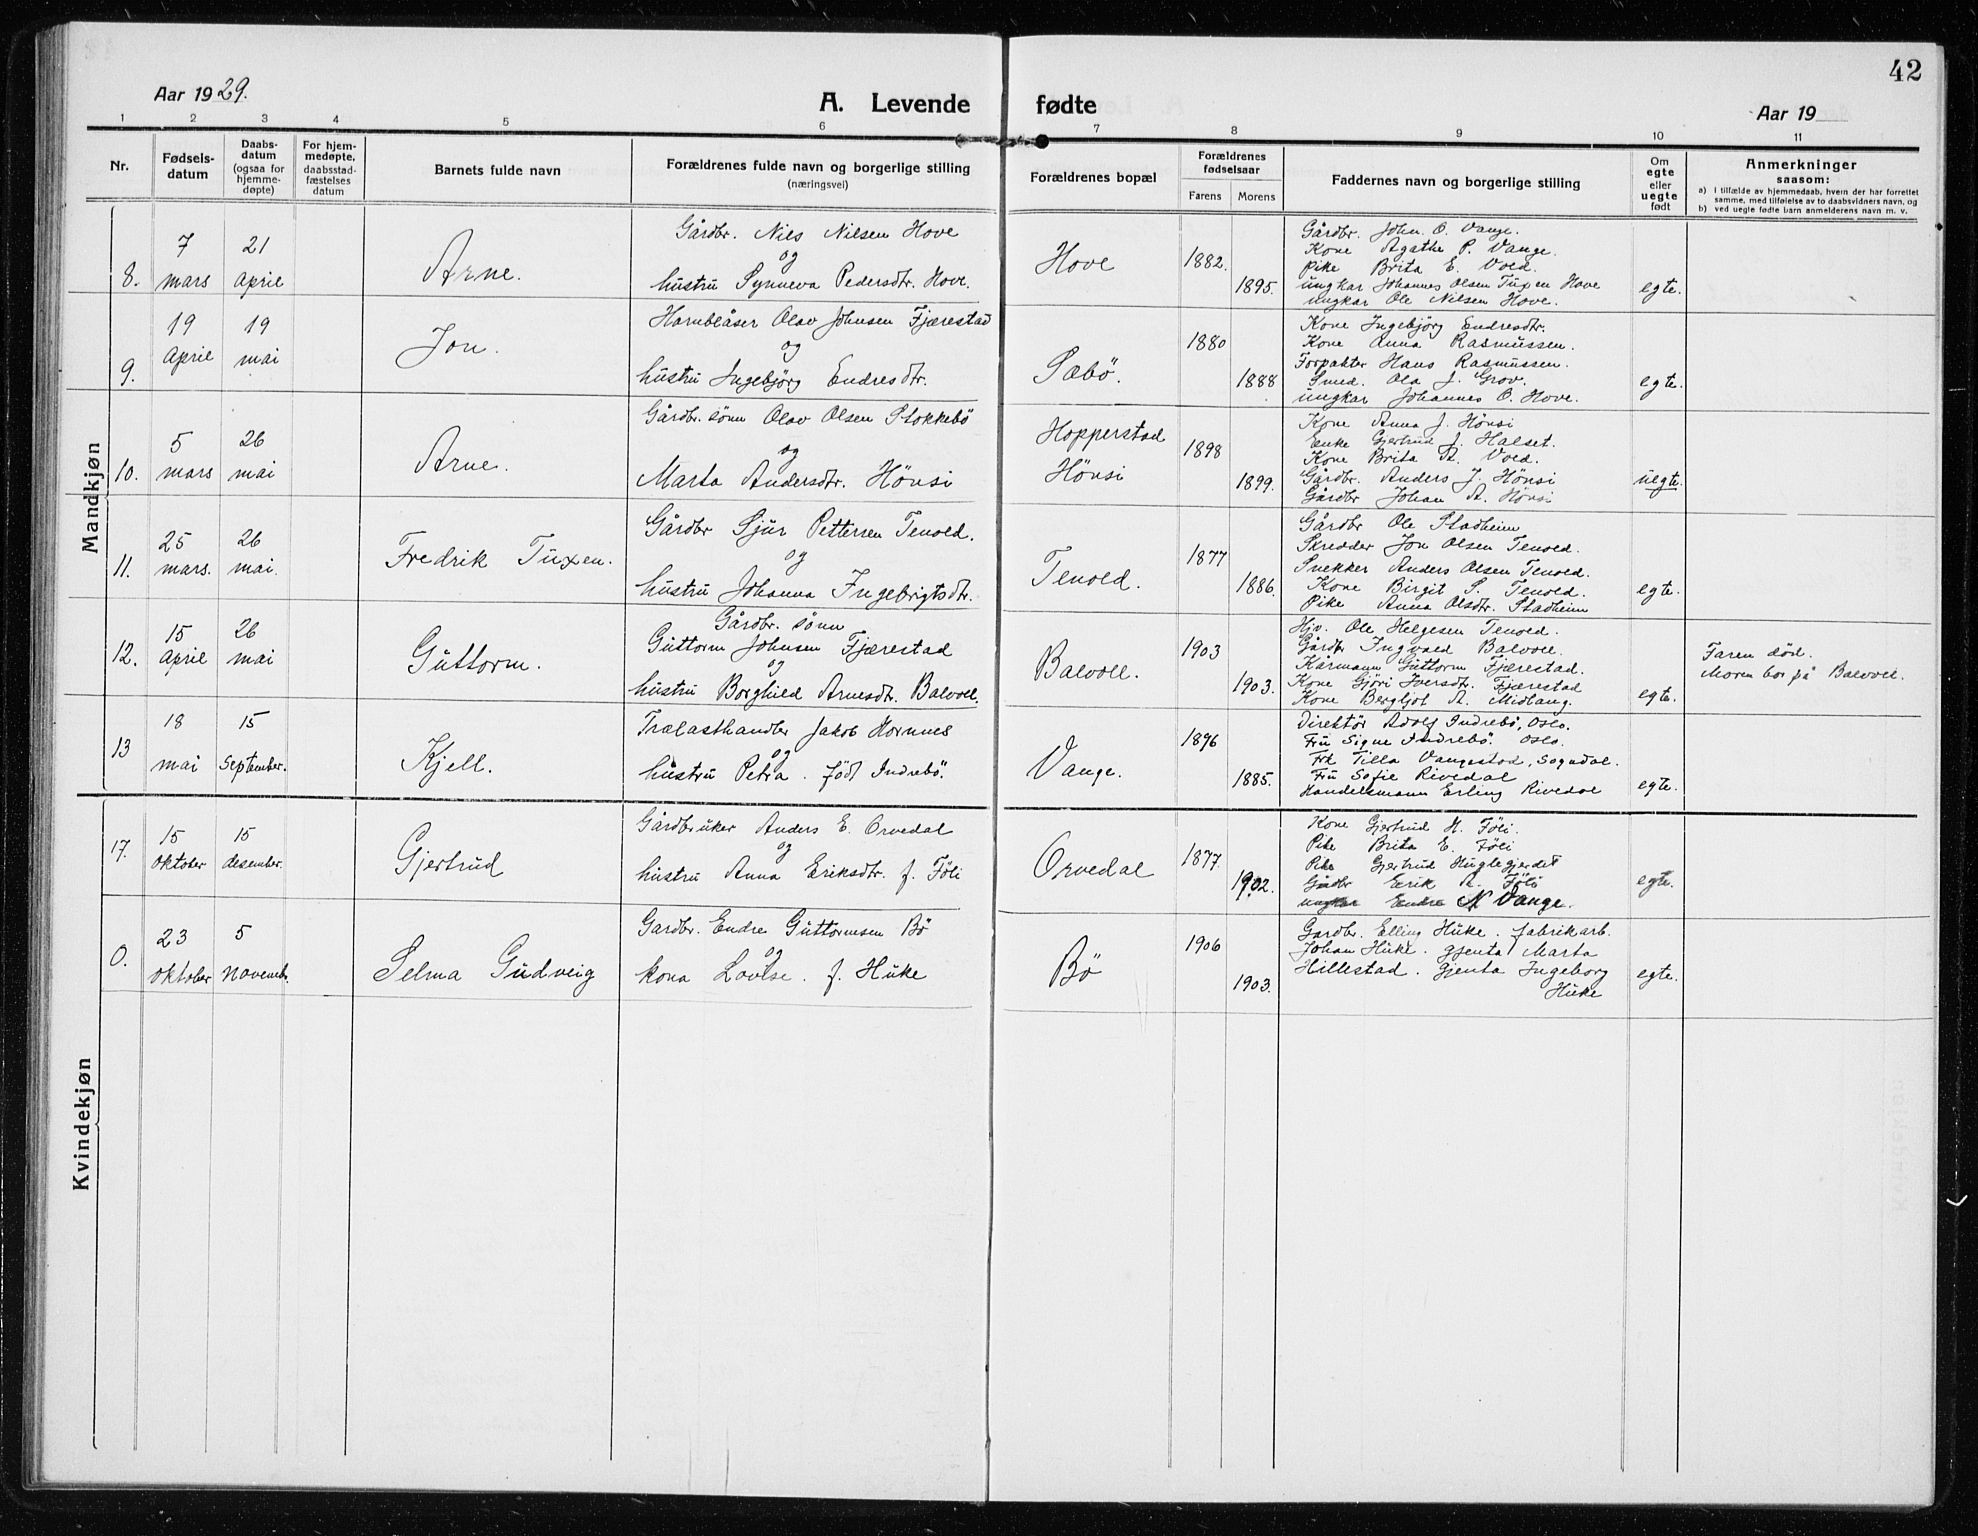 42
Aar 1929.
A. Levende fødte
Aar 19
1 2 3 4 5 6 7 8 9 10 11
Nr.
Fødsels-
datum
Daabs-
datum
(ogsaa for
hjemme-
døpte)
For hjem-
medøpte,
daabsstad-
fæstelses
datum
Barnets fulde navn
Forældrenes fulde navn og borgerlige stilling
(næringsvei)
Forældrenes bopæl
Forældrenes
fødselsaar
Farens Morens
Faddernes navn og borgerlige stilling
Om
egte
eller
uegte
født
Anmerkninger
saasom:
a) I tilfælde av hjemmedaab, hvem der har forrettet
samme, med tilføielse av to daabsvidners navn, og
b) ved uegte fødte barn anmelderens navn m. v.
Mandkjøn
8.
7
mars
21
april
Arne.
Gårdbr. Nils Nilsen Hove
og
hustru Synneva Pedersdtr. Hove.
Hove
1882.
1895.
Gårdbr. John. O. Vange.
Kone Agathe P. Vange.
Pike Brita E. Vold.
ungkar Johannes Olsen Tuxen Hove
ungkar Ole Nilsen Hove.
egte.
9.
19
april
19
mai
Jon.
Hornblåser Olav Johnsen Fjærestad
og
hustru Ingebjørg Endresdtr.
Sæbö.
1880
1888
Kone Ingebjörg Endresdtr.
Kone Anna Rasmussen.
Forpakter Hans Rasmussen.
Smed. Ola J. Grov.
ungkar Johannes O. Hove.
egte.
10.
5
mars
26
mai
Arne.
Gårdbr. sönn Olav Olsen Stokkebö
og
Marta Andersdtr. Hönsi
Hopperstad
Hönsi
1898
1899.
Kone Anna J. Hönsi
Enke Gjertrud J. Halset.
Kone Brita A. Vold.
Gårdbr. Anders J. Hönsi
Gårdbr Johan A. Hönsi
uegte.
11.
25
mars.
26
mai.
Fredrik Tuxen.
Gårdbr Sjur Pettersen Tenold.
og
hustru Johanna Ingebrigtsdtr.
Tenold.
1877
1886.
Gårdbr Ole Stadheim
Skredder Jon Olsen Tenold.
Snekker Anders Olsen Tenold.
Kone Birgit S. Tenold.
Pike Anna Olsdtr. Stadheim
egte.
12.
15
april
26
mai
Guttorm.
Gårdbr. sönn
Guttorm Johnsen Fjærestad
og
hustru Borghild Arnesdtr. Balvoll.
Balvoll.
1903
1903.
Hjv. Ole Helgesen Tenold.
Gårdbr Ingvald Balvoll.
Kårmann Guttorm Fjærestad.
Kone Gjöri Iversdtr. Fjærestad
Kone Bergljot A. Midlang.
egte.
Faren död.
Moren bor på Balvoll.
13
18
mai
15
September.
Kjell.
Trælasthandler Jakob Hornnes
og
hustru Petra. född Indrebö.
Vange.
1896
1885.
Direktör Adolf Indrebö, Oslo.
Fru Signe Indrebö. Oslo.
Frk Tilla Vangestad, Sogndal.
Fru Sofie Rivedal
Handelsmann Erling Rivedal
egte.
Kvindekjøn
17.
15
oktober
15
desember.
Gjertrud
Gårdbruker Anders E. Orvedal
og
hustru Anna Eriksdtr. f. Föli
Orvedal
1877.
1902.
Kone Gjertrud H. Föli.
Pike Brita E. Föli
Pike Gjertrud Huglegjerdet
Gårdbr Erik A. Föli
ungkar Endre N Vange.
egte.
0.
23
oktober
5
novemb.
Selma Gudveig
Gardbr. Endre Guttormsen Bö
og
kona Lovise. f. Huke
Bö
1906
1903.
Gardbr. Elling Huke. fabrikarb.
Johan Huke. gjenta Marta
Hillestad. gjenta Ingeborg
Huke
egte.